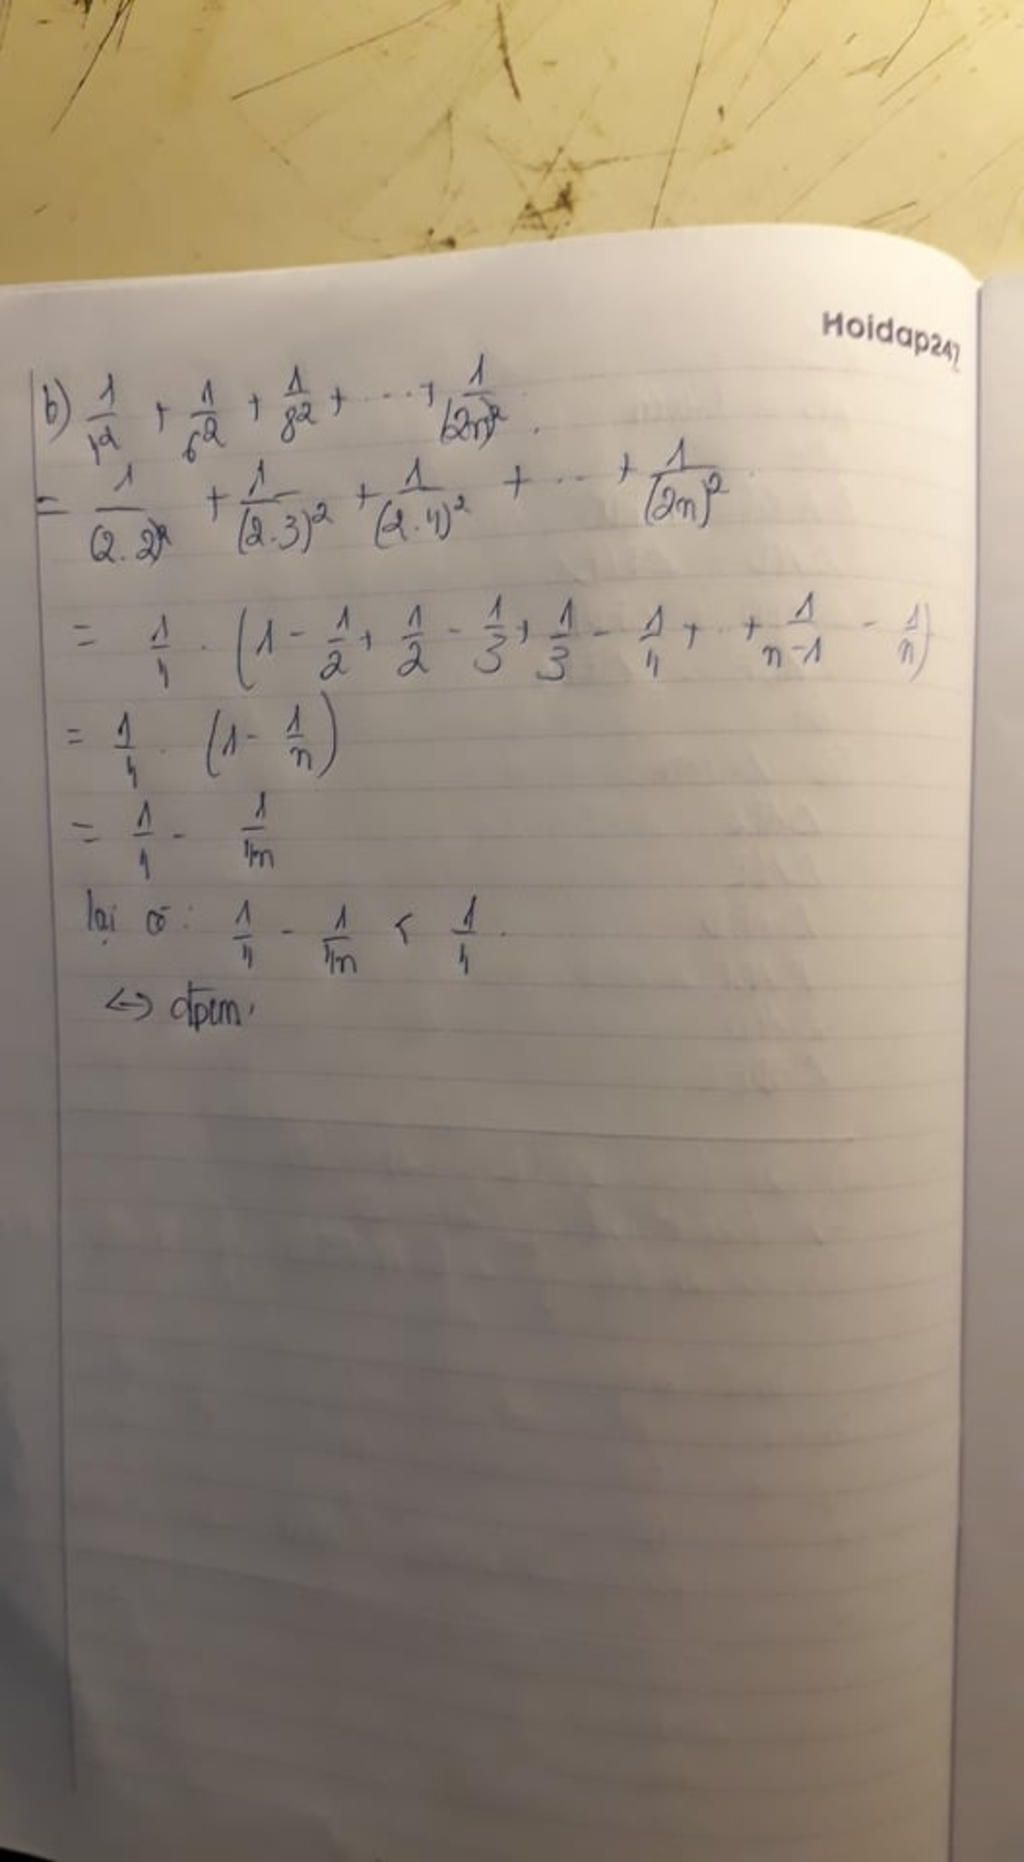 Hoidap247
b) 1/4² + 1/6² + 1/8² + ... + 1/(2n)².
= 1/(2.2)² + 1/(2.3)² + 1/(2.4)² + ... + 1/(2n)².
= 1/4 . (1 - 1/2 + 1/2 - 1/3 + 1/3 - 1/4 + .. + 1/n-1 - 1/n)
= 1/4 . (1 - 1/n)
= 1/4 - 1/4n
lại có: 1/4 - 1/4n < 1/4.
<-> đpcm.